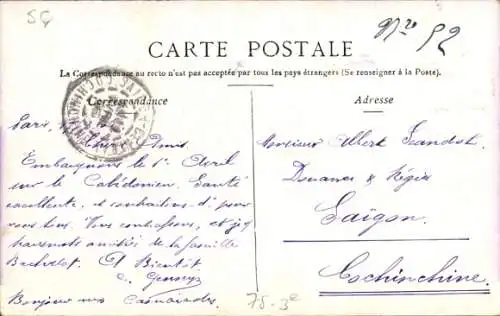 5ç
N° 52
CARTE POSTALE
La Correspondance au recto n'est pas acceptée par tous les pays étrangers (Se renseigner à la Poste).
Correspondance
Adresse
Paris,
Chers Amis
Embarquons le 1er Avril
sur le Calédonien. Santé
excellente, et souhaitons d° pour
vous tous. Vous embrassons, et
amitiés de la famille
Bachelot. A Bientôt
Bonjour aux Camarades.
Monsieur Albert
Douanes & Régies
Saïgon.
Cochinchine.
75-3e